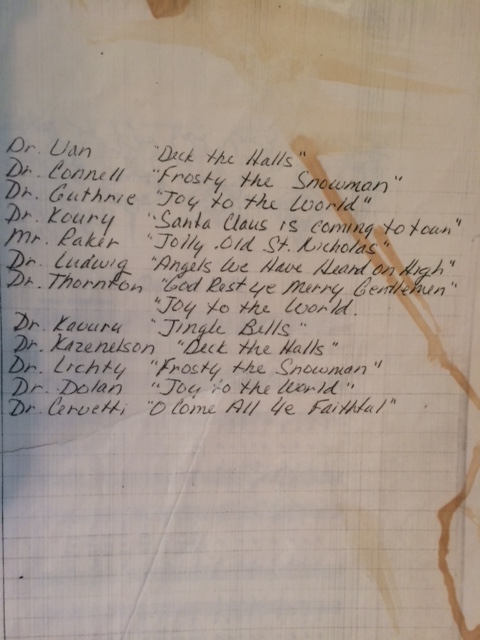 Dr. Uan "Deck the Halls"
Dr. Connell "Frosty the Snowman"
Dr. Guthrie "Joy to the World"
Dr. Koury "Santa Claus is coming to town"
Mr. Raker "Jolly Old St. Nicholas"
Dr. Ludwig "Angels We Have Heard on High"
Dr. Thornton "God Rest ye Merry Gentlemen"
"Joy to the World.
Dr. Kavuru "Jingle Bells"
Dr. Kazenelson "Deck the Halls"
Dr. Lichty "Frosty the Snowman"
Dr. Dolan "Joy to the World"
Dr. Cervetti "O Come All Ye Faithful"